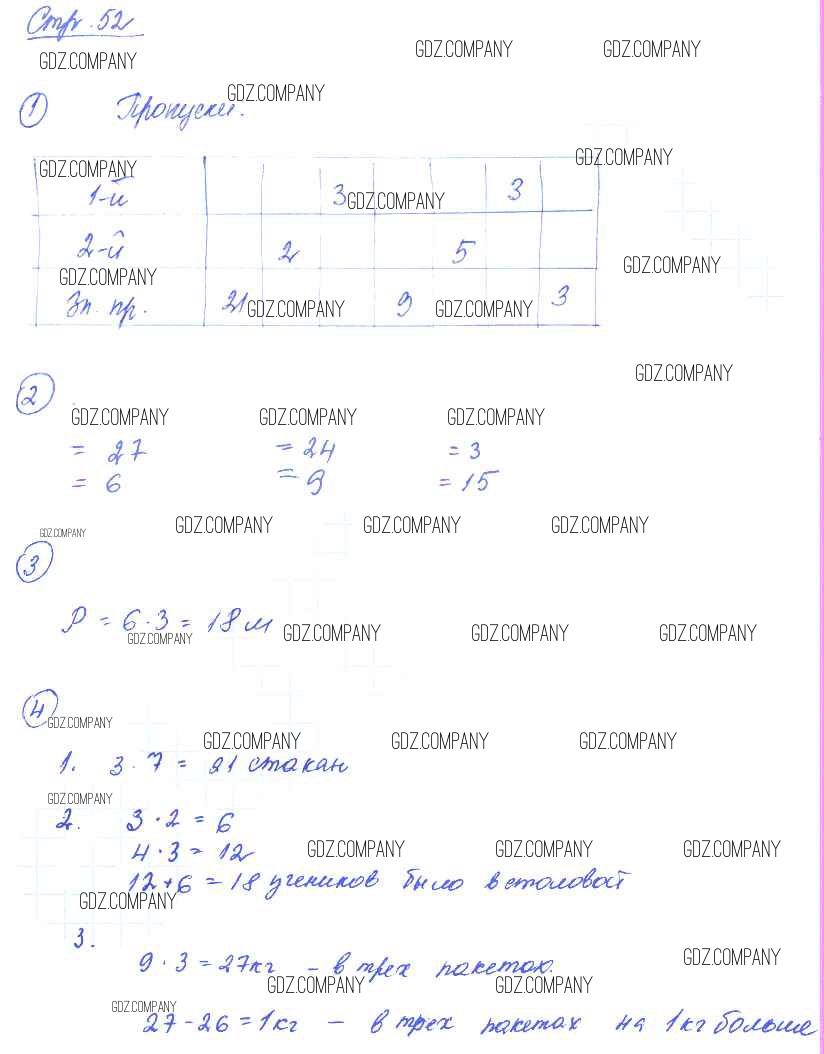 Стр. 52
GDZ.COMPANY GDZ.COMPANY GDZ.COMPANY
GDZ.COMPANY
1 Пропуски.
GDZ.COMPANY GDZ.COMPANY
1-й 3 GDZ.COMPANY 3
2-й 2 5
GDZ.COMPANY GDZ.COMPANY
Зн. пр. 21 GDZ.COMPANY 9 GDZ.COMPANY 3
GDZ.COMPANY
2
GDZ.COMPANY GDZ.COMPANY GDZ.COMPANY
= 27 = 24 = 3
= 6 = 9 = 15
GDZ.COMPANY GDZ.COMPANY GDZ.COMPANY GDZ.COMPANY
3
P = 6 · 3 = 18 м
GDZ.COMPANY GDZ.COMPANY GDZ.COMPANY GDZ.COMPANY
4
GDZ.COMPANY
GDZ.COMPANY GDZ.COMPANY GDZ.COMPANY
1. 3 · 7 = 21 стакан
GDZ.COMPANY
2. 3 · 2 = 6
4 · 3 = 12 GDZ.COMPANY GDZ.COMPANY GDZ.COMPANY
12 + 6 = 18 учеников было в столовой
GDZ.COMPANY
3.
9 · 3 = 27 кг – в трех пакетах. GDZ.COMPANY
GDZ.COMPANY GDZ.COMPANY
GDZ.COMPANY
27 - 26 = 1 кг – в трех пакетах на 1 кг больше